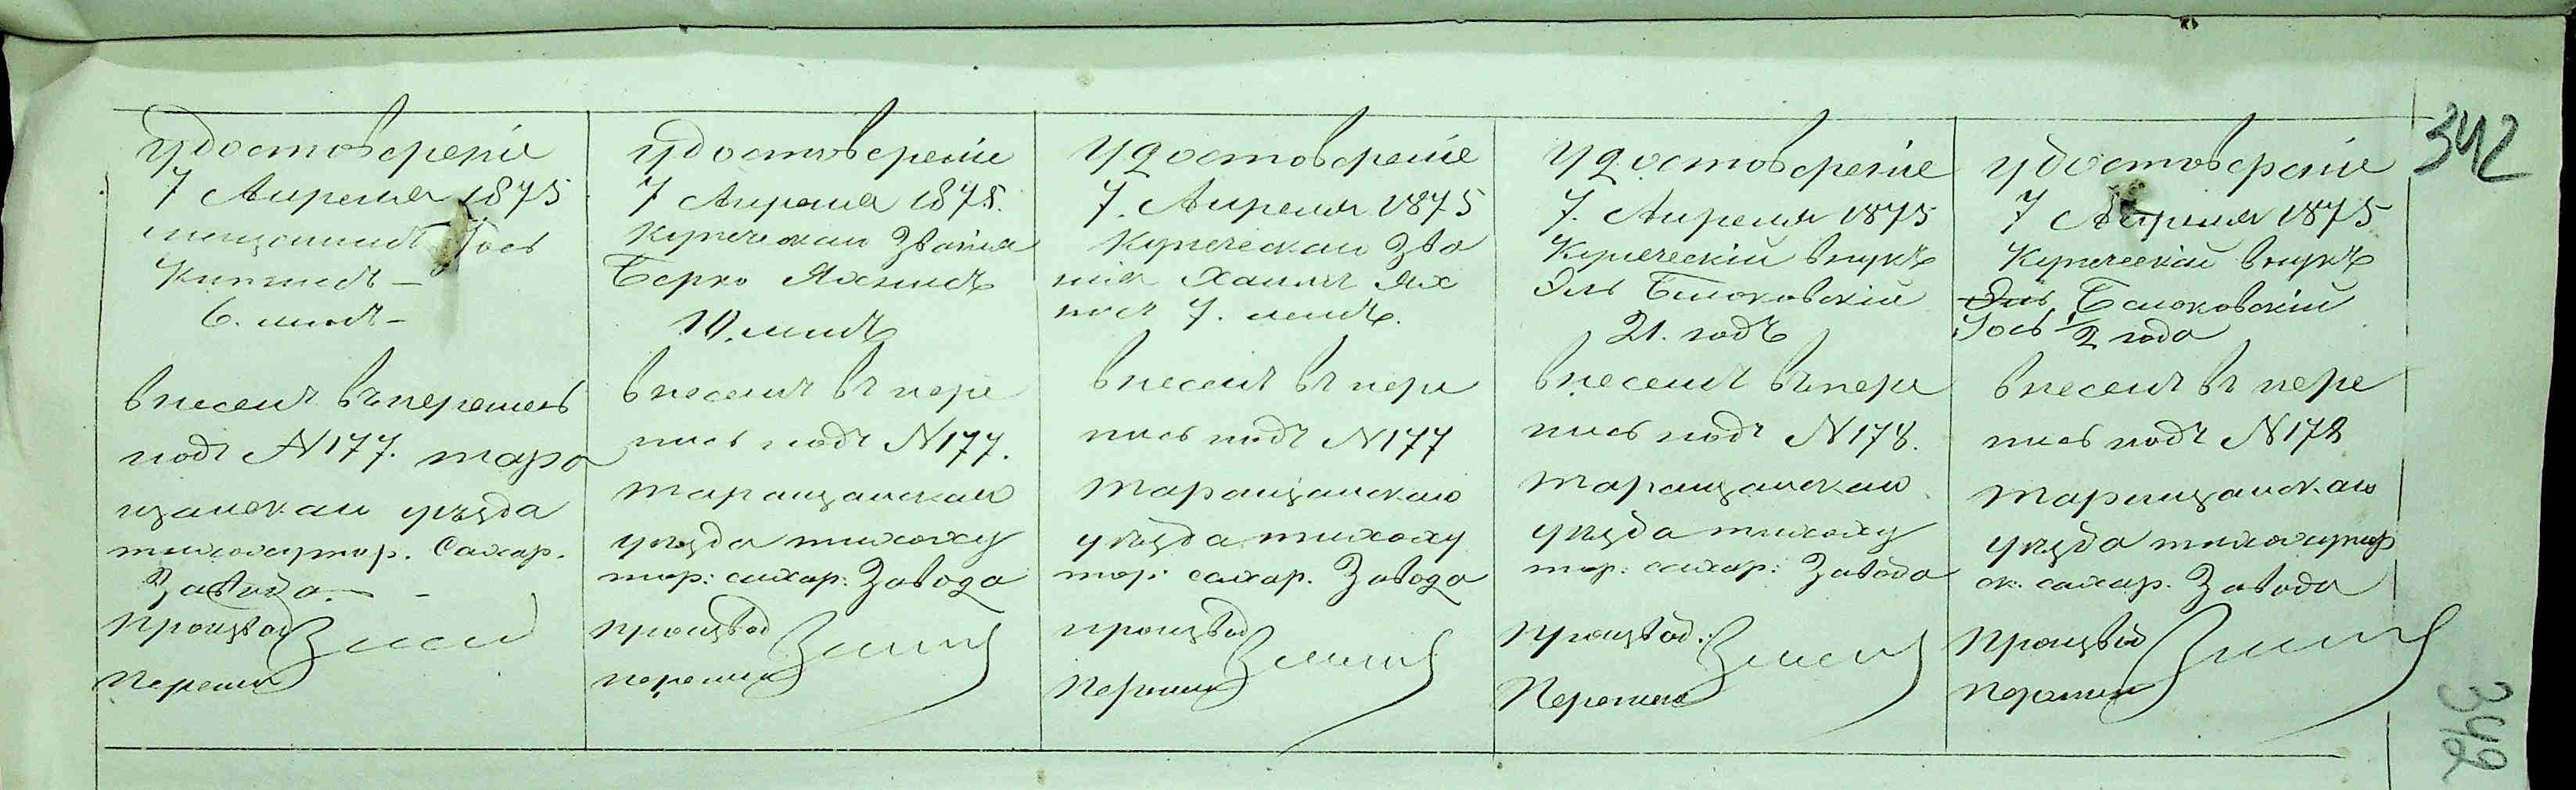 342
удостоверенiе
7 Апреля 1875
мещанинъ Iось
6. летъ
внесенъ въ перепись
под № 177. тара
щанскаго уезда
сахар.
Завода.
Производ
Перепись
удостоверенiе
7 Апреля 1875.
купеческаго званiя
Берко Яхнисъ
10. летъ
внесенъ въ пере
пись подъ № 177.
таращанскаго
уезда тихоху
тор: сахар: Завода
производ
перепись
удостоверенiе
7. Апреля 1875
купеческаго зва
нiя Ях
7. летъ.
внесенъ въ пере
пись подъ № 177
таращанскаго
уезда тихоху
тор: сахар. Завода
производ
Перепись
удостоверенiе
7. Апреля 1875
Купеческiй внукъ
Эль Билоковскiй
21. годъ
внесенъ въ пере
пись подъ № 178.
таращанскаго
уезда тихоху
тор: сахар: Завода
Производ.
Перепись
удостоверенiе
7 Апреля 1875
Купеческiй внукъ
Эль Билоковскiй
Iось 1/2 года
внесенъ въ пере
пись подъ № 178
таращанскаго
уезда тихохутор
ск. сахар. Завода
Производ
Перепись
342